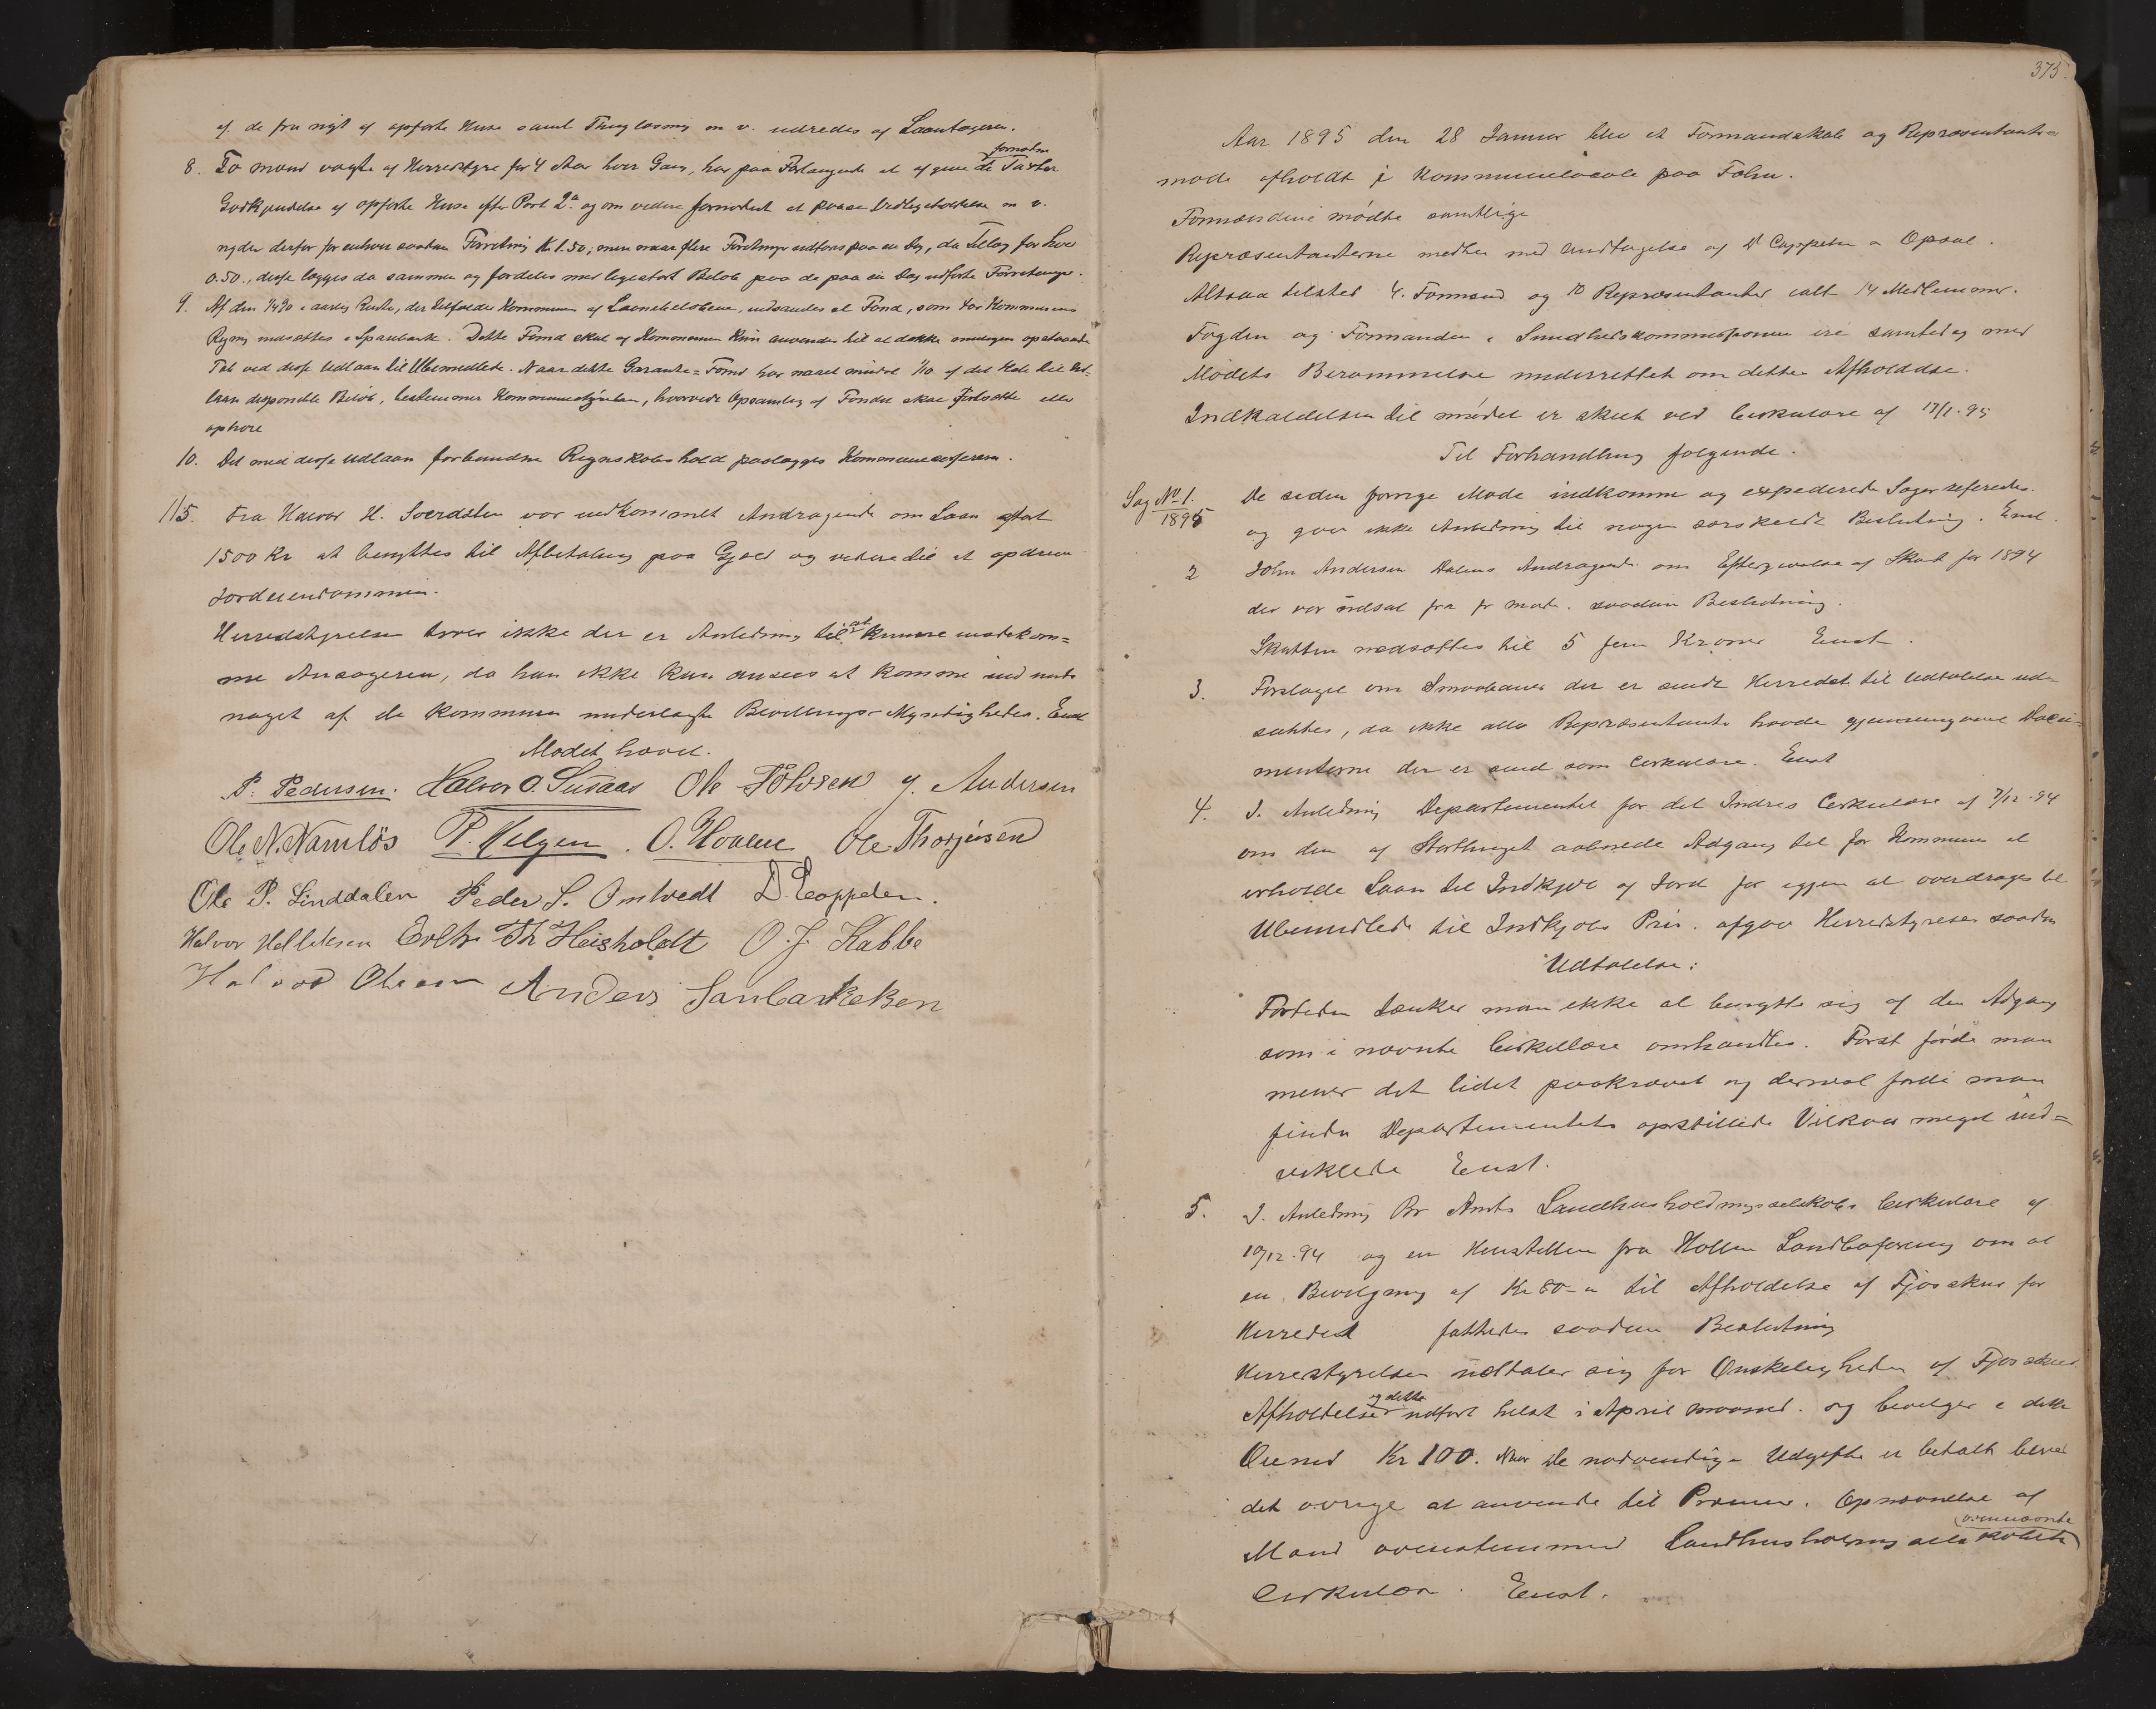 af de fra nyt af opførte Huse samt Thinglæsning m v. udredes af Laantageren.
8. To mænd valgte af Herredstyre for 4 Aar hver Gang, har paa Forlangende at afgive de fornødne Taxter
Godkjendelse af opførte Huse efter Post 2a og om videre fornødent at paase Vedligeholdelse m v.
nyder derfor for enhver saadan Forretning Kr 1.50; men naar flere Forretninger udføres paa en Dag, da Tillæg for hver
0.50., disse lægges da sammen og fordeles med ligestort Beløb paa de paa en Dag udførte Forretninger.
9. Af den aarlig Rente, der tilfalder Kommunen af Laanebeløbene, opsamles et Fond, som for Kommunens
Regning indsættes i Sparebank. Dette Fond skal af Kommunen kun anvendes til at dække muligens opstaaende
Tab ved disse Udlaan til Ubemidlede. Naar dette Garantie=Fond har naaet mindst 1/10 af det Hele til Ud-
laan disponible Beløb, bestemmer Kommunestyrelsen, hvorvidt Opsamling af Fondet skal fortsætte eller
ophøre
10. Det med disse Udlaan forbundne Regnskabshold paalægges Kommunekassereren.
115. Fra Halvor H. Sverdsten var indkommet Andragende om Laan stort
1500 Kr at benyttes til Afbetaling paa Gjæld og videre til at opdrive
Jordeiendommen.
Herredstyrelsen tror ikke der er Anledning til at kunne imødekom=
me Ansøgeren, da han ikke kan ansees at komme ind under
noget af de Kommunen underlagte Bevillings-Myndigheder. Enst
Mødet hævet.
P. Pedersen. Halvor O. Susaas Ole Tolvsen J. Andersen
Ole N. Namløs P. Helgen. O. Hvalene Ole Thorjusen
Ole P. Linddalen Peder S. Omtvedt D. Cappelen.
Halvor Helleksen Th Heisholdt O. J. Kabbe
Halvor Olsen Anders Saubarkeken
375.
Aar 1895 den 28 Januar blev et Formandskabs og Repræsentant=
møde afholdt i Kommunelocale paa Folm.
Formændene mødte samtlige
Repræsentanterne mødte med Undtagelse af D Cappelen o Opsal.
Altsaa tilsted 4. Formænd og 10 Repræsentanter ialt 14 Medlemmer.
Fogden og Formanden i Sundhedskommissionen ere samtidig med
Mødets Berammelse underrettet om dettes Afholdelse.
Indkaldelsen til mødet er skeet ved Cirkulære af 17/1.95
Til Forhandling følgende.
Sag No 1. 1895 De siden forrige Møde indkomne og expederede Sager refereredes.
og gav ikke Anledning til nogen særskildt Beslutning. Enst.
2 John Andersen Dalens Andragende om Eftergivelse af Skat for 1894
der var udsat fra fr møde. saadan Beslutning.
Skatten nedsættes til 5 fem Kroner Enst.
3. Forslaget om Smaabaner der er sendt Herredet til Udtalelse ud-
sættes, da ikke alle Repræsentanter havde gjennemgaaet Docu-
menterne der er sendt som Cirkulære. Enst
4. I. Anledning Departementet for det Indres Cirkulære af 7/12.94
om den af Storthinget aabnede Adgang til for Kommuner at
erholde Laan til Indkjøb af Jord for igjen at overdrages til
Ubemidlede til Indkjøbs Pris. afgav Herredstyrelsen saadan
Udtalelse:
Fortiden tænker man ikke at benytte sig af den Adgang
som i nævnte Cirkulære omhandles. Først fordi man
mener det lidet paakrævet og dernæst fordi man
finder Departementets opstillede Vilkaar meget ind=
viklede Enst.
5. I. Anledning Br Amts Landhusholdningsselskabs Cirkulære af
10/12.94 og en Henstillen fra Hollen Landboforening om at
en Bevilgning af Kr 80 til Afholdelse af Fjøsskue for
Herredet fattedes saadan Beslutning
Herredstyrelsen udtaler sig for Ønskeligheden af Fjøsskuer
Afholdelse og dette udført helst i April maaned. og bevilger i dette
Øiemed Kr 100. Naar de nødvendige Udgifter er betalt bliver
det øvrige at anvende til Præmier. Opnævnelse af
Mænd overenstemmend Landhusholdningsselskabets ovennævnte
Cirkulær. Enst.